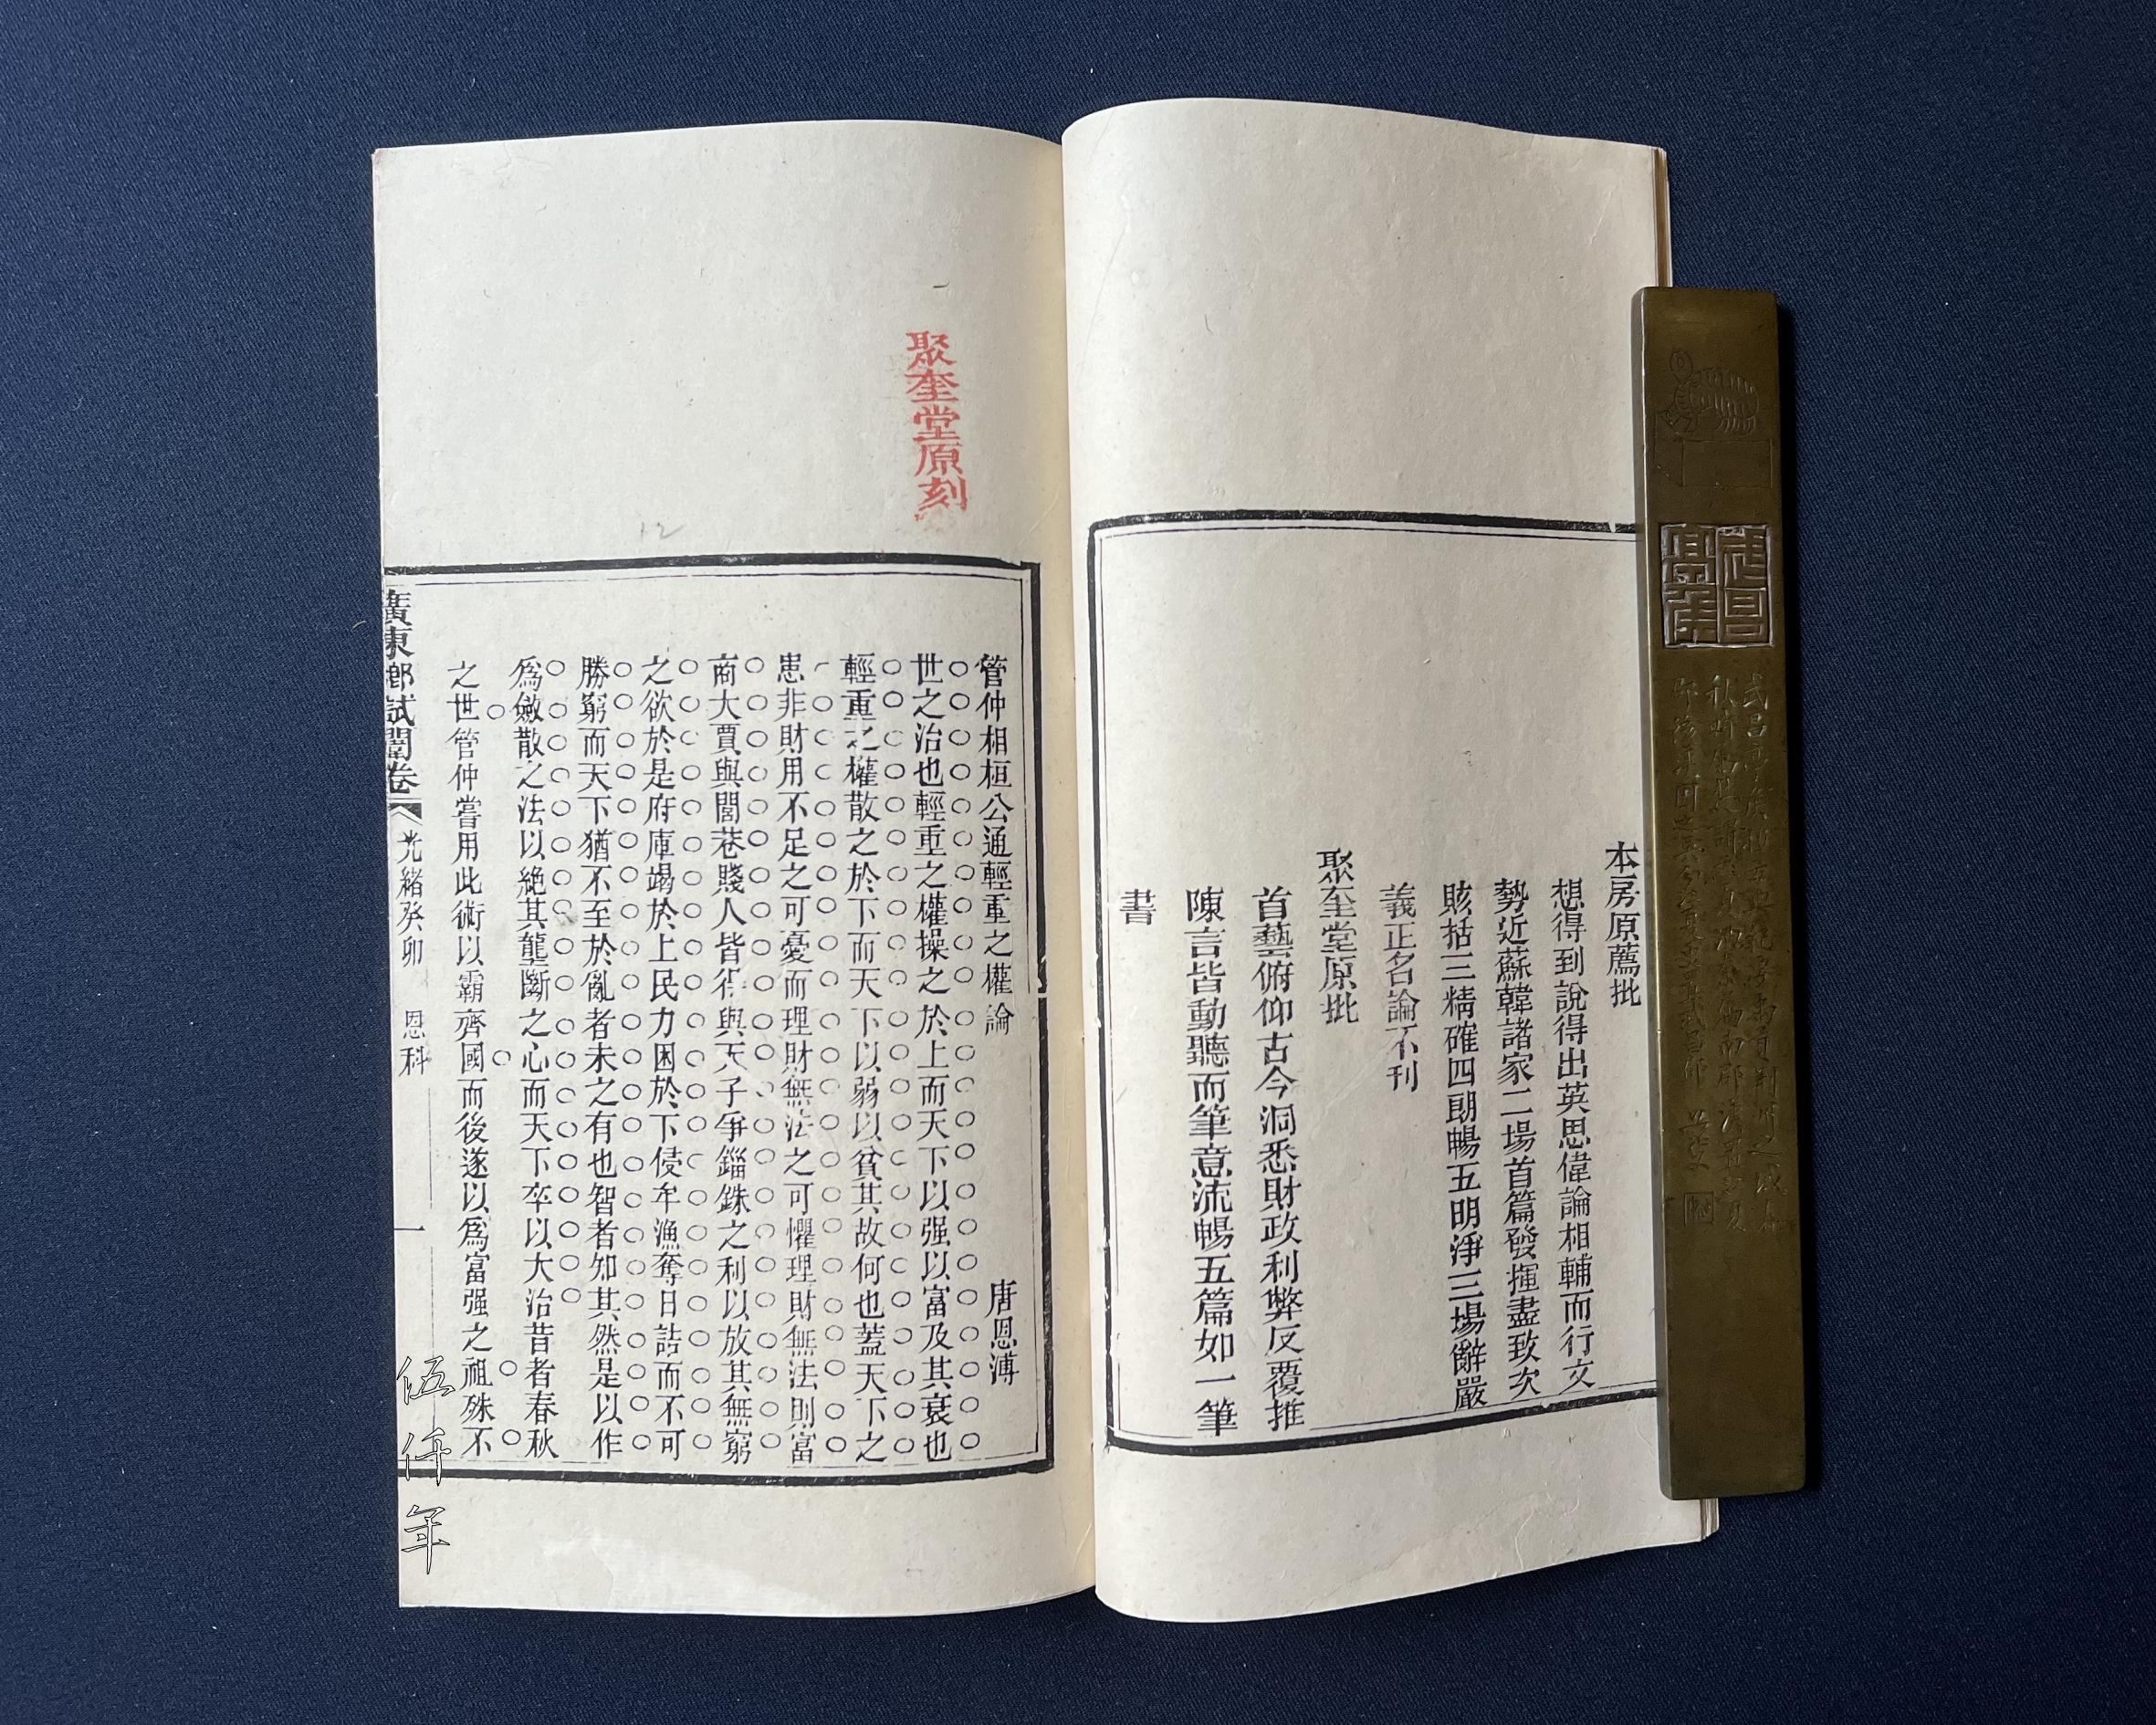 本房原薦批
想得到說得出英思偉論相輔而行文
勢近蘇韓諸家二場首篇發揮盡致次
賅括三精確四朗暢五明淨三場辭嚴
義正名論不刊
聚奎堂原批
首藝俯仰古今洞悉財政利弊反覆推
陳言皆動聽而筆意流暢五篇如一筆
書
聚奎堂原刻
管仲相桓公通輕重之權論
唐恩溥
世之治也輕重之權操之於上而天下以强以富及其衰也
輕重之權散之於下而天下以弱以貧其故何也蓋天下之
患非財用不足之可憂而理財無法之可懼理財無法則富
商大賈與閭巷賤人皆得與天子爭錙銖之利以放其無窮
之欲於是府庫竭於上民力困於下侵牟漁奪日誥而不可
勝窮而天下猶不至於亂者未之有也智者知其然是以作
爲斂散之法以絕其壟斷之心而天下卒以大治昔者春秋
之世管仲嘗用此術以霸齊國而後遂以爲富强之祖殊不
廣東鄉試闈卷
光緒癸卯
恩科
一
伍仟年
12
武昌